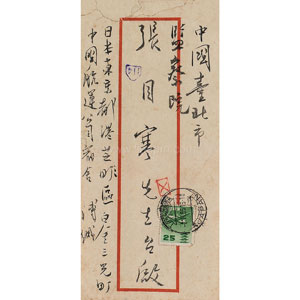 中國臺北市
監察院
張目寒先生台啟
日本東京都港區芝白金三光町
中國航運公司宿舍
25